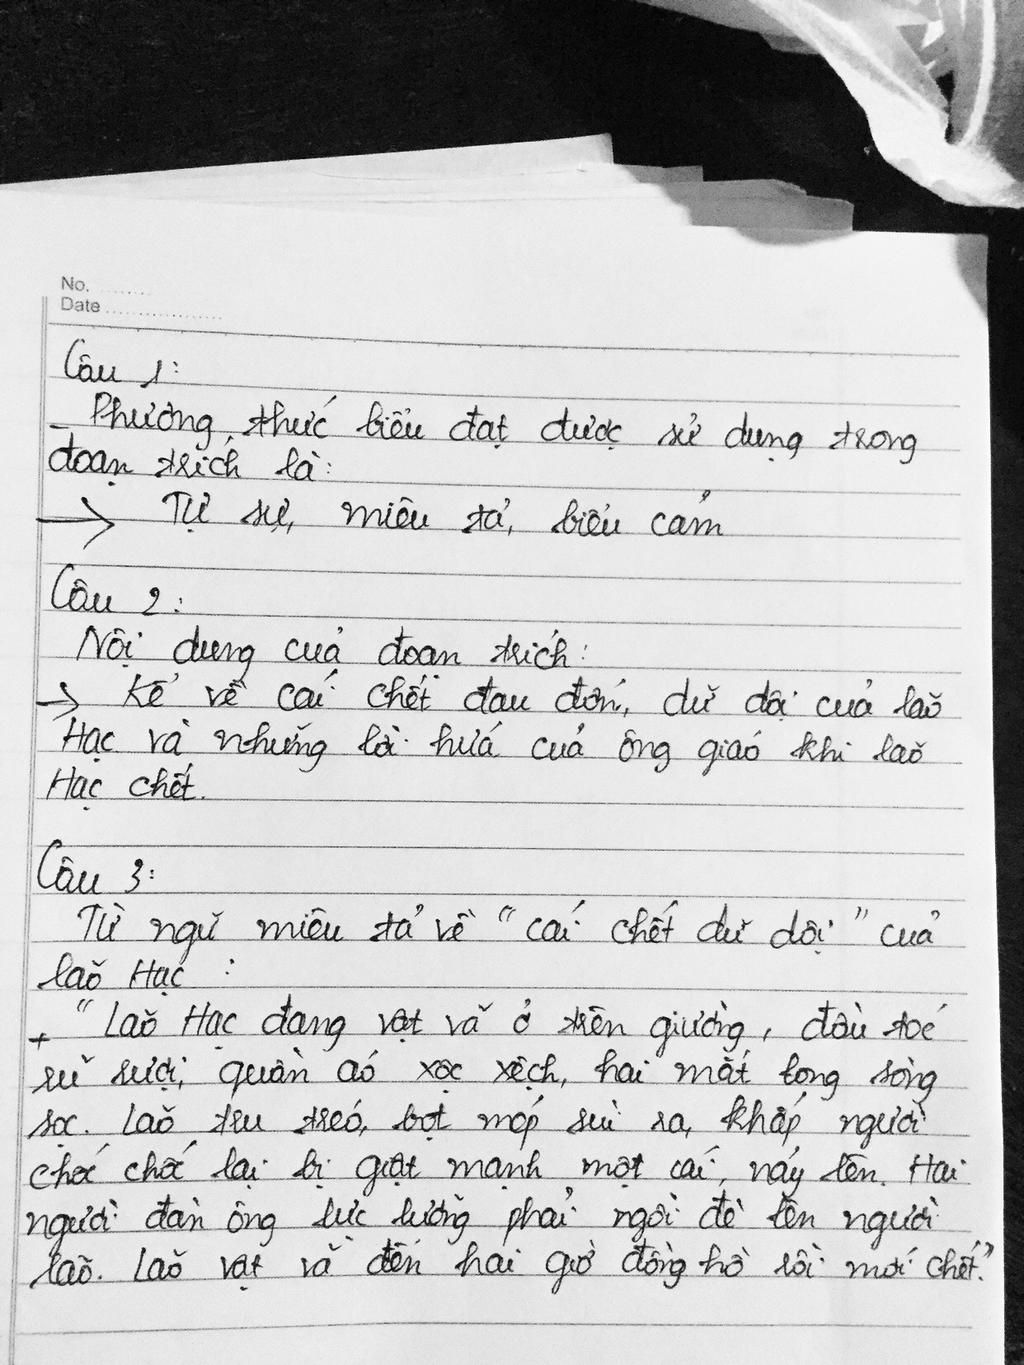 No. ........
Date ..................
Câu 1:
- Phương thức biểu đạt được sử dụng trong
đoạn trích là:
→ Tự sự, miêu tả, biểu cảm
Câu 2:
Nội dung của đoạn trích:
→ Kể về cái chết đau đớn, dữ dội của lão
Hạc và những lời hứa của ông giáo khi lão
Hạc chết.
Câu 3:
Từ ngữ miêu tả về "cái chết dữ dội" của
lão Hạc :
+ "Lão Hạc đang vật vã ở trên giường, đầu tóc
rũ rượi, quần áo xộc xệch, hai mắt long sòng
sọc. Lão tru tréo, bọt mép sùi ra, khắp người
chốc chốc lại bị giật mạnh một cái, nảy lên. Hai
người đàn ông lực lưỡng phải ngồi đè lên người
lão. Lão vật vã đến hai giờ đồng hồ rồi mới chết."